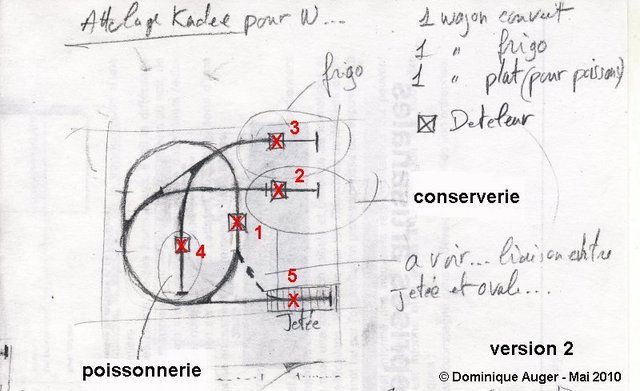 Attelage Kadee pour N...
1 wagon couvert
1 " frigo
1 " plat (pour poissons)
Deteleur
frigo
3
2
conserverie
1
4
5
a voir... liaison entre
Jetée et ovale...
Jetée
poissonnerie
version 2
© Dominique Auger - Mai 2010